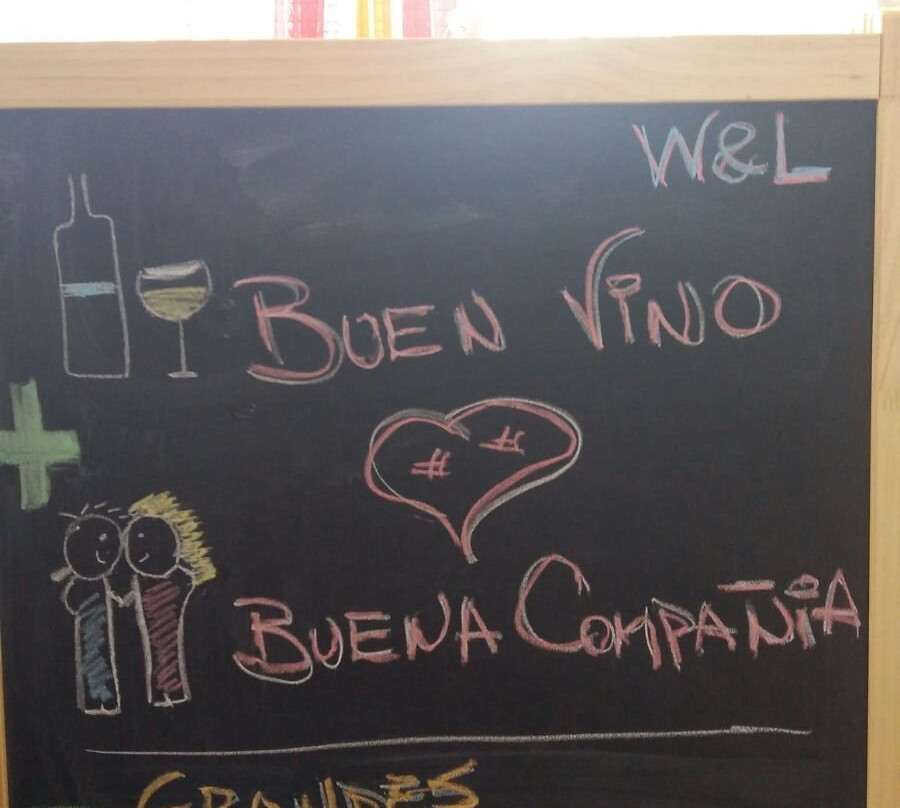 W&L
BUEN VINO
# #
BUENA COMPAÑIA
GRANDES